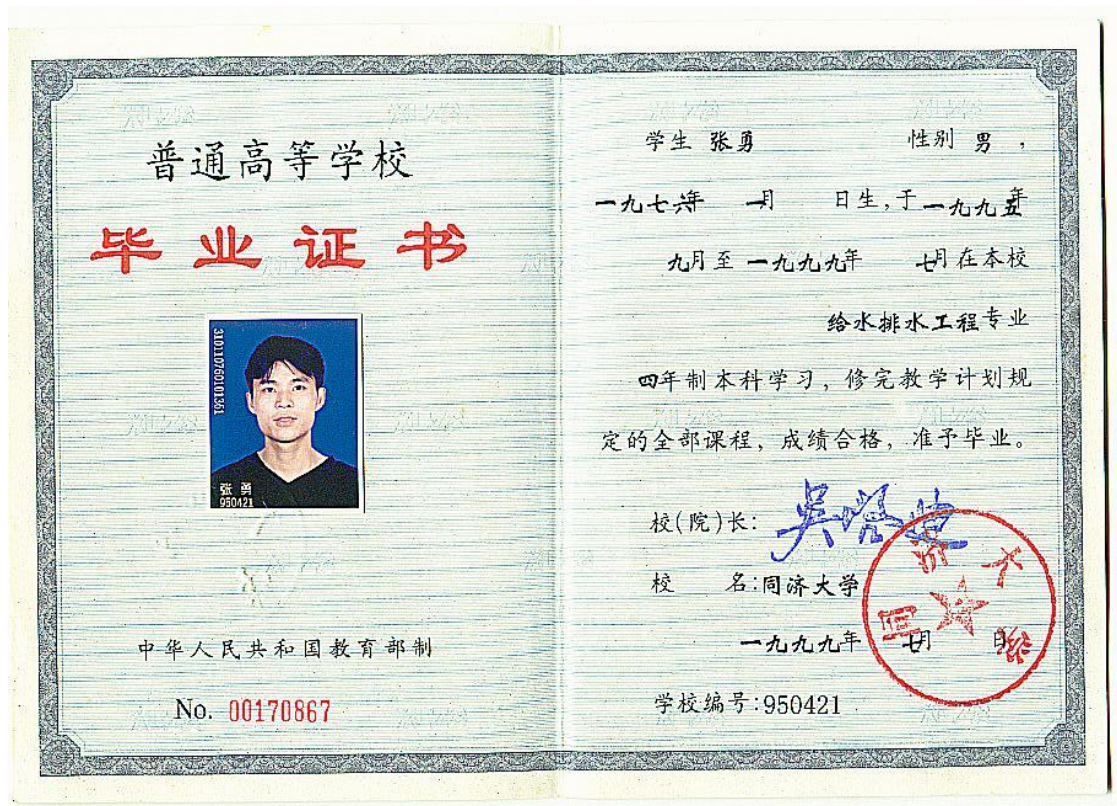 普通高等学校
毕业证书
310110760101361
张勇
950421
中华人民共和国教育部制
No. 00170867
学生 张勇 性别 男,
一九七六年 一月 日生,于一九九五年
九月至一九九九年 七月在本校
给水排水工程专业
四年制本科学习,修完教学计划规
定的全部课程,成绩合格,准予毕业。
校(院)长:
校 名:同济大学
一九九九年 七月 日
同济大学
学校编号:950421